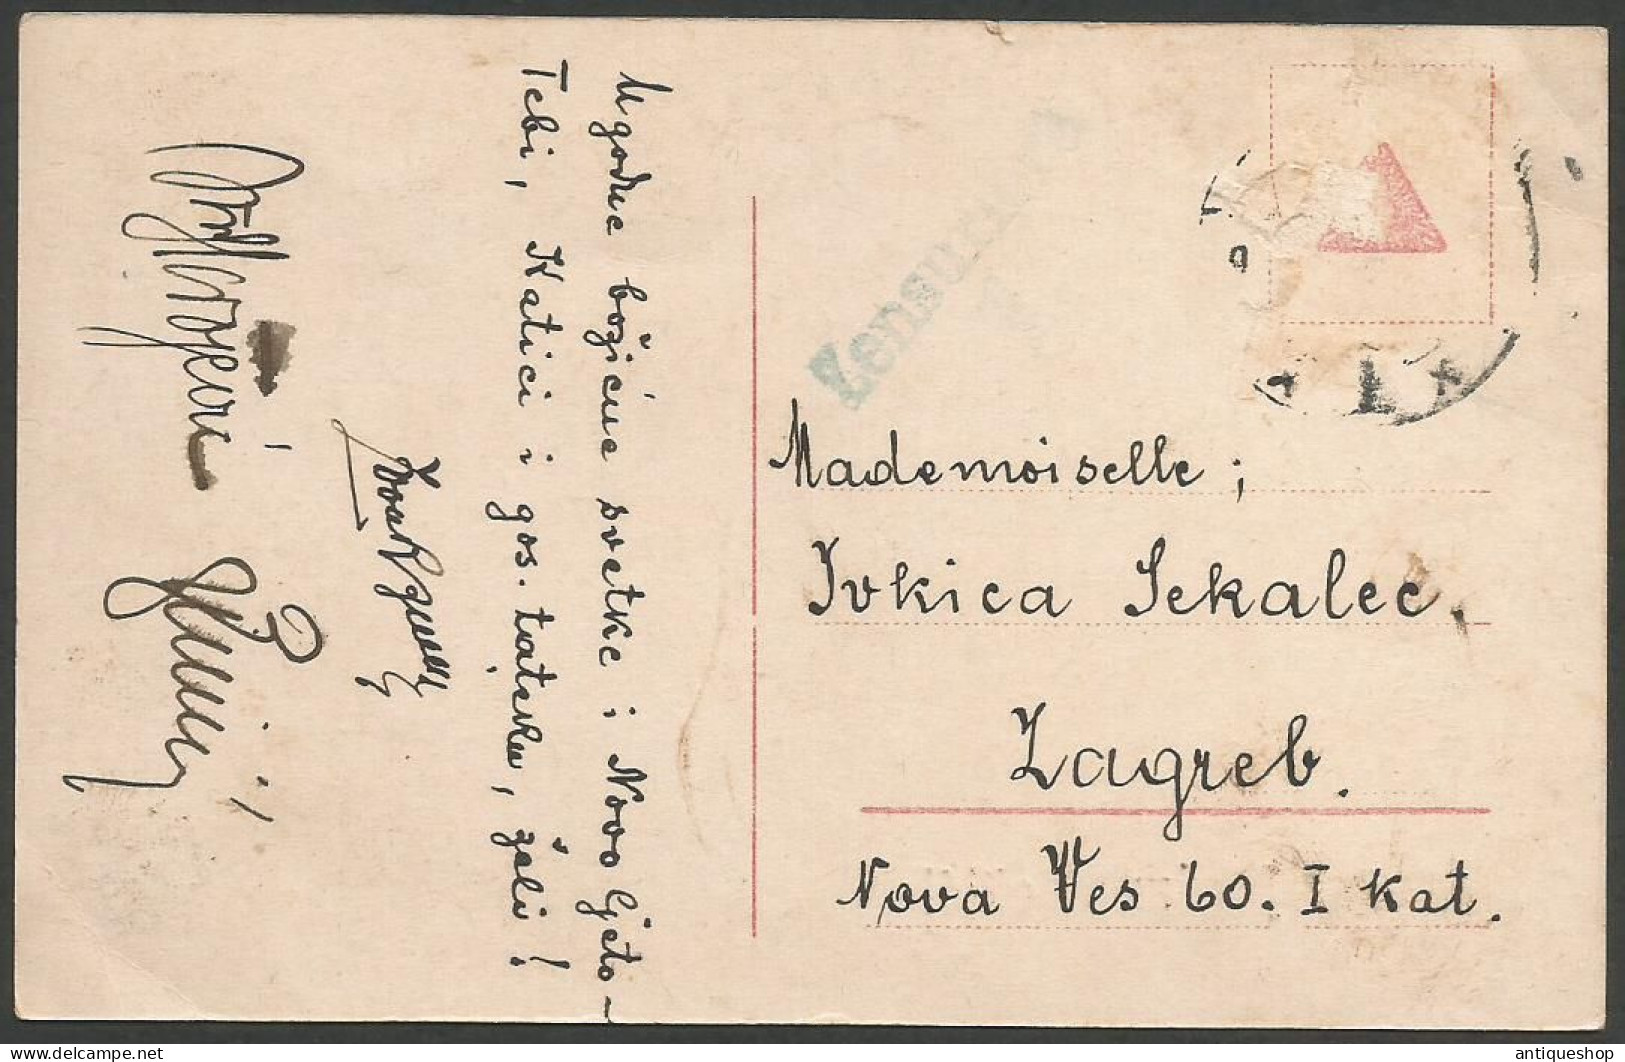 Ugodne božićne svetke i Novo ljeto –
Tebi, Katici i gos. tateku, želi!
Zensuriert
Mademoiselle;
Ivkica Sekalec.
Zagreb.
Nova Ves 60. I kat.
antiqueshop